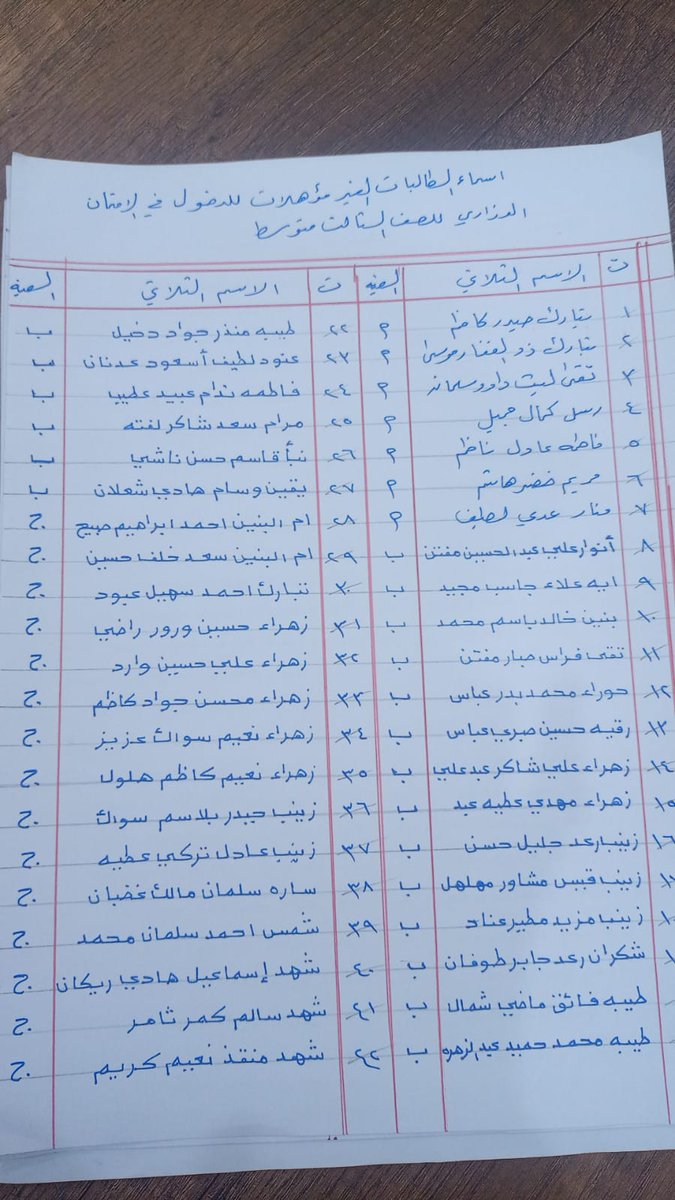 اسماء الطالبات الغير مؤهلات للدخول في الامتحان
الوزاري للصف الثالث متوسط
ت الاسم الثلاثي الشعبة ت الاسم الثلاثي الشعبة
١ تبارك حيدر كاظم م ٢٢ طيبه منذر جواد دخيل ب
٢ تبارك ذو الفقار موسى م ٢٣ عنود لطيف أسعود عدنان ب
٣ تقى ليث داود سلمان م ٢٤ فاطمه ندام عبيد ب
٤ رسل كمال جميل م ٢٥ مرام سعد شاكر لفته ب
٥ فاطمة عادل ناظم م ٢٦ نبأ قاسم حسن ناشي ب
٦ مريم خضر هاشم م ٢٧ يقين وسام هادي شعلان ب
٧ منار عدي لطيف م ٢٨ ام البنين احمد ابراهيم صبيح ج
٨ أنوار علي عبد الحسين مفتن ب ٢٩ ام البنين سعد خلف حسين ج
٩ ايه علاء جاسب مجيد ب ٣٠ تبارك احمد سهيل عبود ج
١٠ بنين خالد باسم محمد ب ٣١ زهراء حسين ورور راضي ج
١١ تقى فراس صبار مفتن ب ٣٢ زهراء علي حسين وارد ج
١٢ حوراء محمد بدر عباس ب ٣٣ زهراء محسن جواد كاظم ج
١٣ رقيه حسين صبري عباس ب ٣٤ زهراء نعيم سوالك عزيز ج
١٤ زهراء علي شاكر عبد علي ب ٣٥ زهراء نعيم كاظم هلول ج
١٥ زهراء مهدي عطيه عبد ب ٣٦ زينب حيدر بلاسم سوالك ج
١٦ زينب رعد جليل حسن ب ٣٧ زينب عادل تركي عطيه ج
زينب قيس مشاور مهلهل ب ٣٨ ساره سلمان مالك غضبان ج
زينب مزيد مطير عناد ب ٣٩ شمس احمد سلمان محمد ج
شكران رعد جابر طوفان ب ٤٠ شهد إسماعيل هادي ريكان ج
طيبه فائق ماضي شمال ب ٤١ شهد سالم كمر ثامر ج
طيبه محمد حميد عبد الزهره ب ٤٢ شهد منقذ نعيم كريم ج